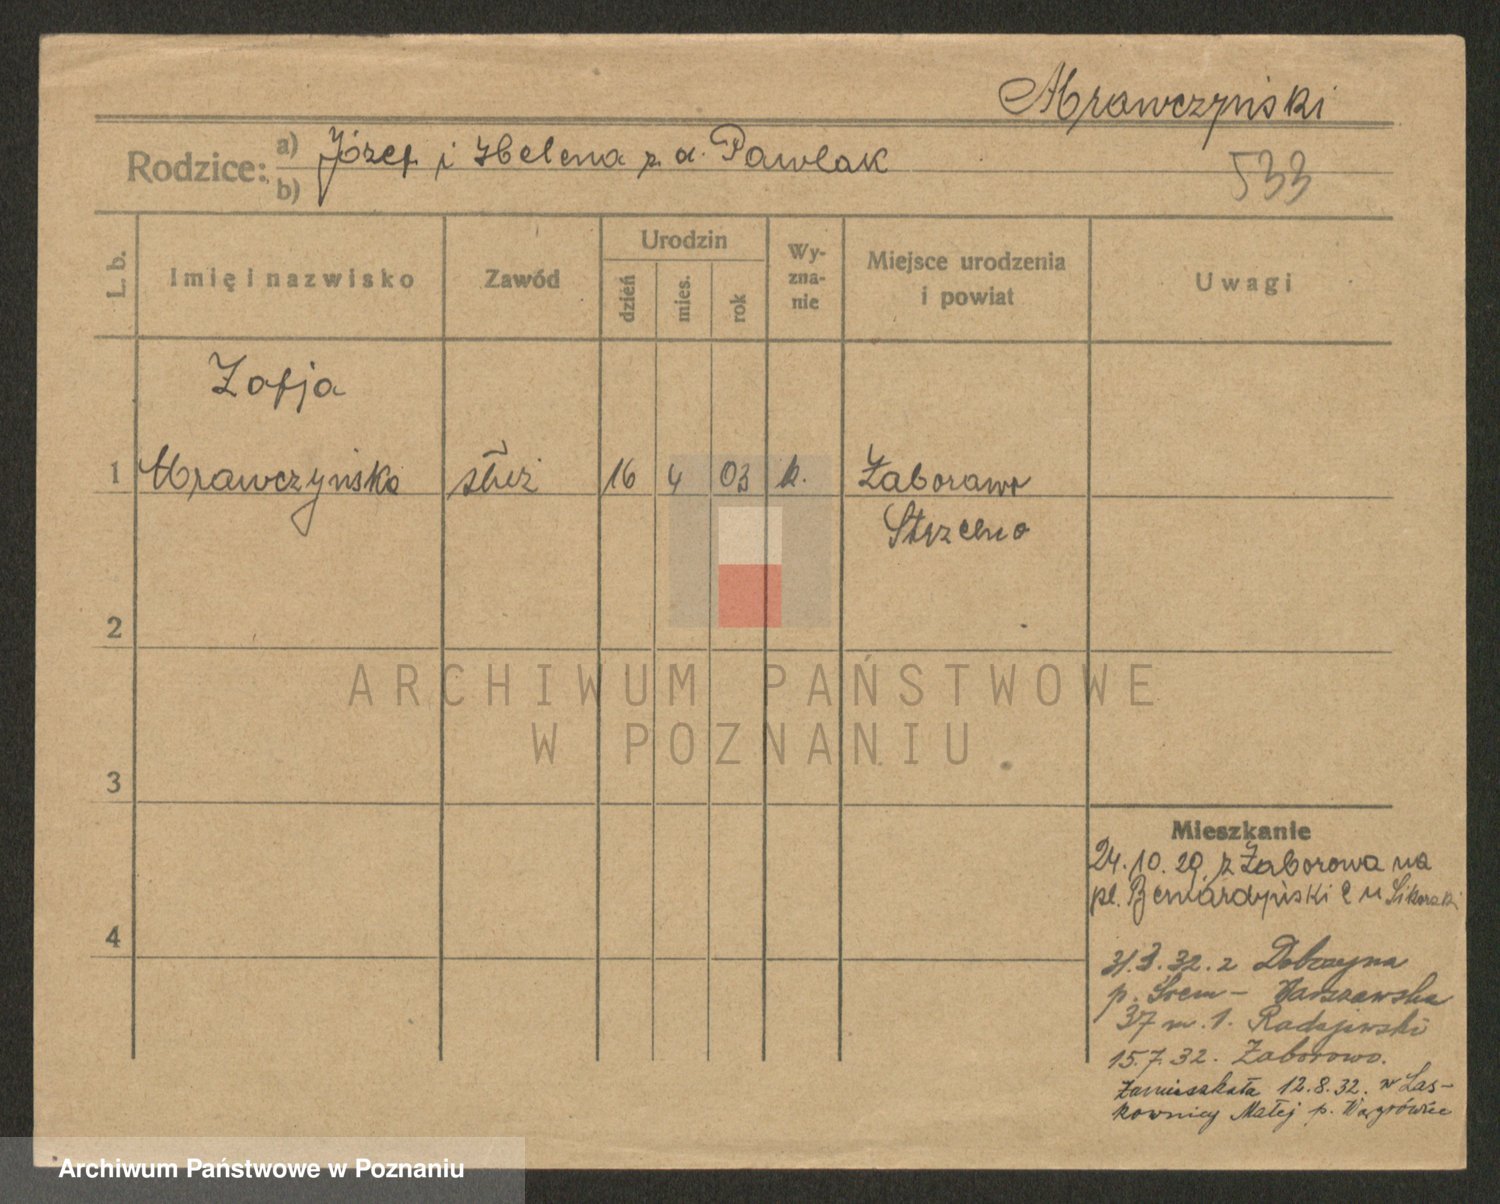 Mrawczyński
Rodzice:
a) Józef i Helena z d. Pawlak
b)
533
L. b.
Imię i nazwisko
Zawód
Urodzin
dzień
mies.
rok
Wy-
zna-
nie
Miejsce urodzenia
i powiat
Uwagi
Zofja
1 Mrawczyńska służ 16 4 03 k. Zaborowo
Strzelno
2
3
4
Mieszkanie
24.10.29. z Zaborowa na
pl. Bernardyński 2 u Sikorski
31.3.32. z Dobczyna
p. Śrem - Warszawska
37 m. 1. Radojewski
15.7.32. Zaborowo.
Zamieszkała 12.8.32. w Las-
kownicy Małej p. Wągrówiec
ARCHIWUM PAŃSTWOWE
W POZNANIU
Archiwum Państwowe w Poznaniu